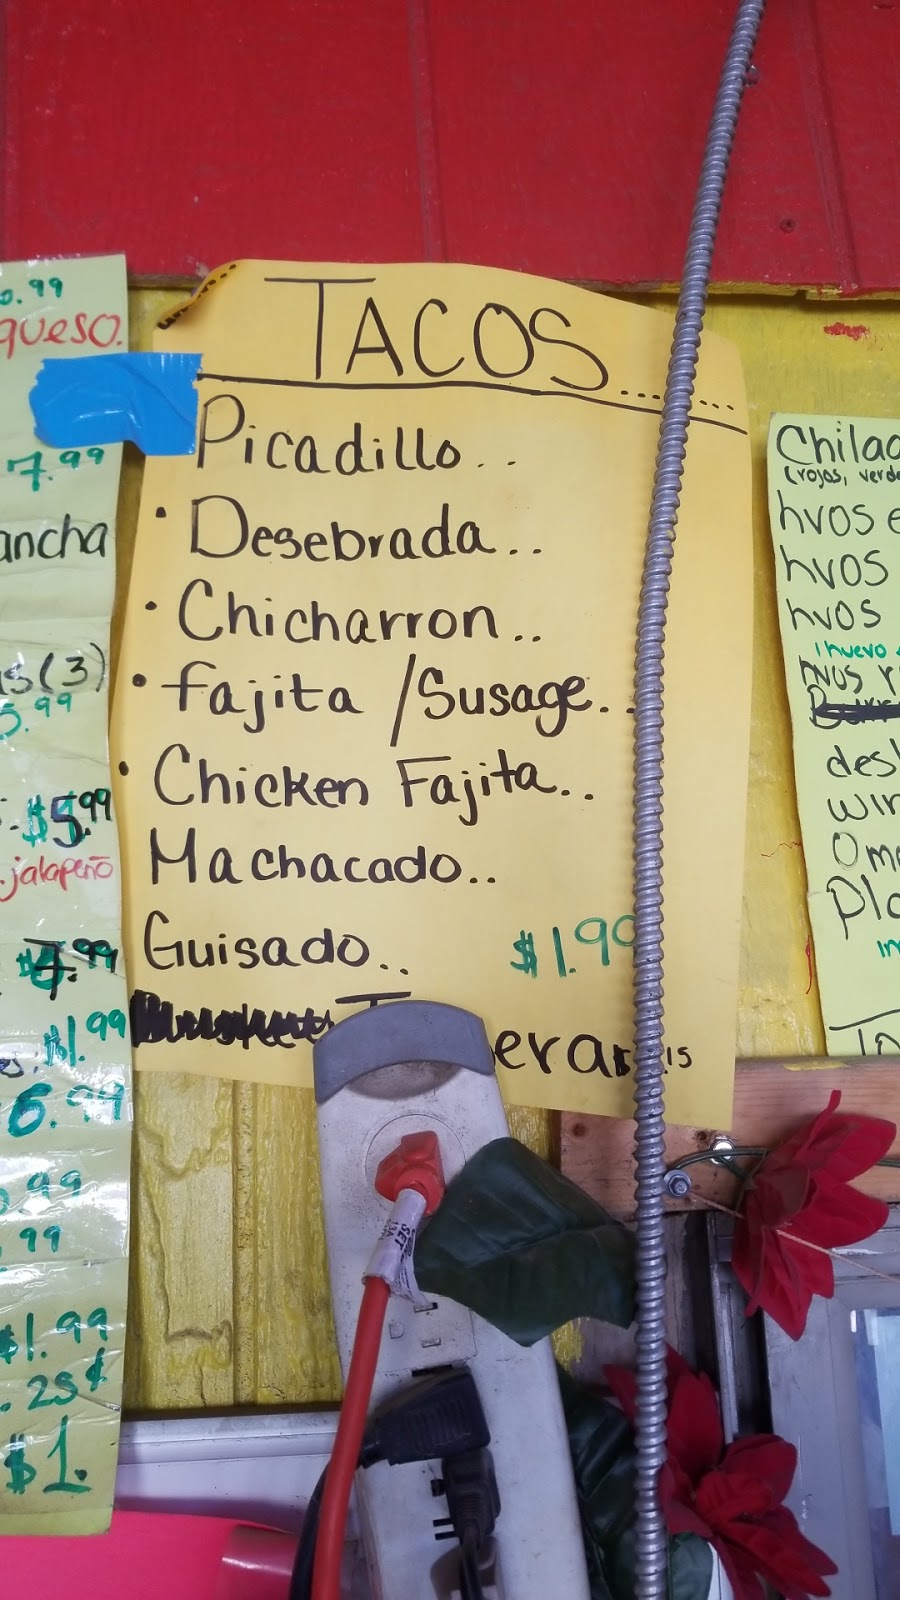 0.99
queso.
7.99
ancha
(3)
5.99
$5.99
jalapeño
7.99
$1.99
6.99
.99
.99
$1.99
.25¢
$1.
TACOS......
Picadillo..
• Desebrada..
• Chicharron..
• fajita /Susage..
• Chicken Fajita..
Machacado..
Guisado.. $1.99
Chilac
(rojos, verde
hvos e
hvos
hvos
1 huevo
hvos r